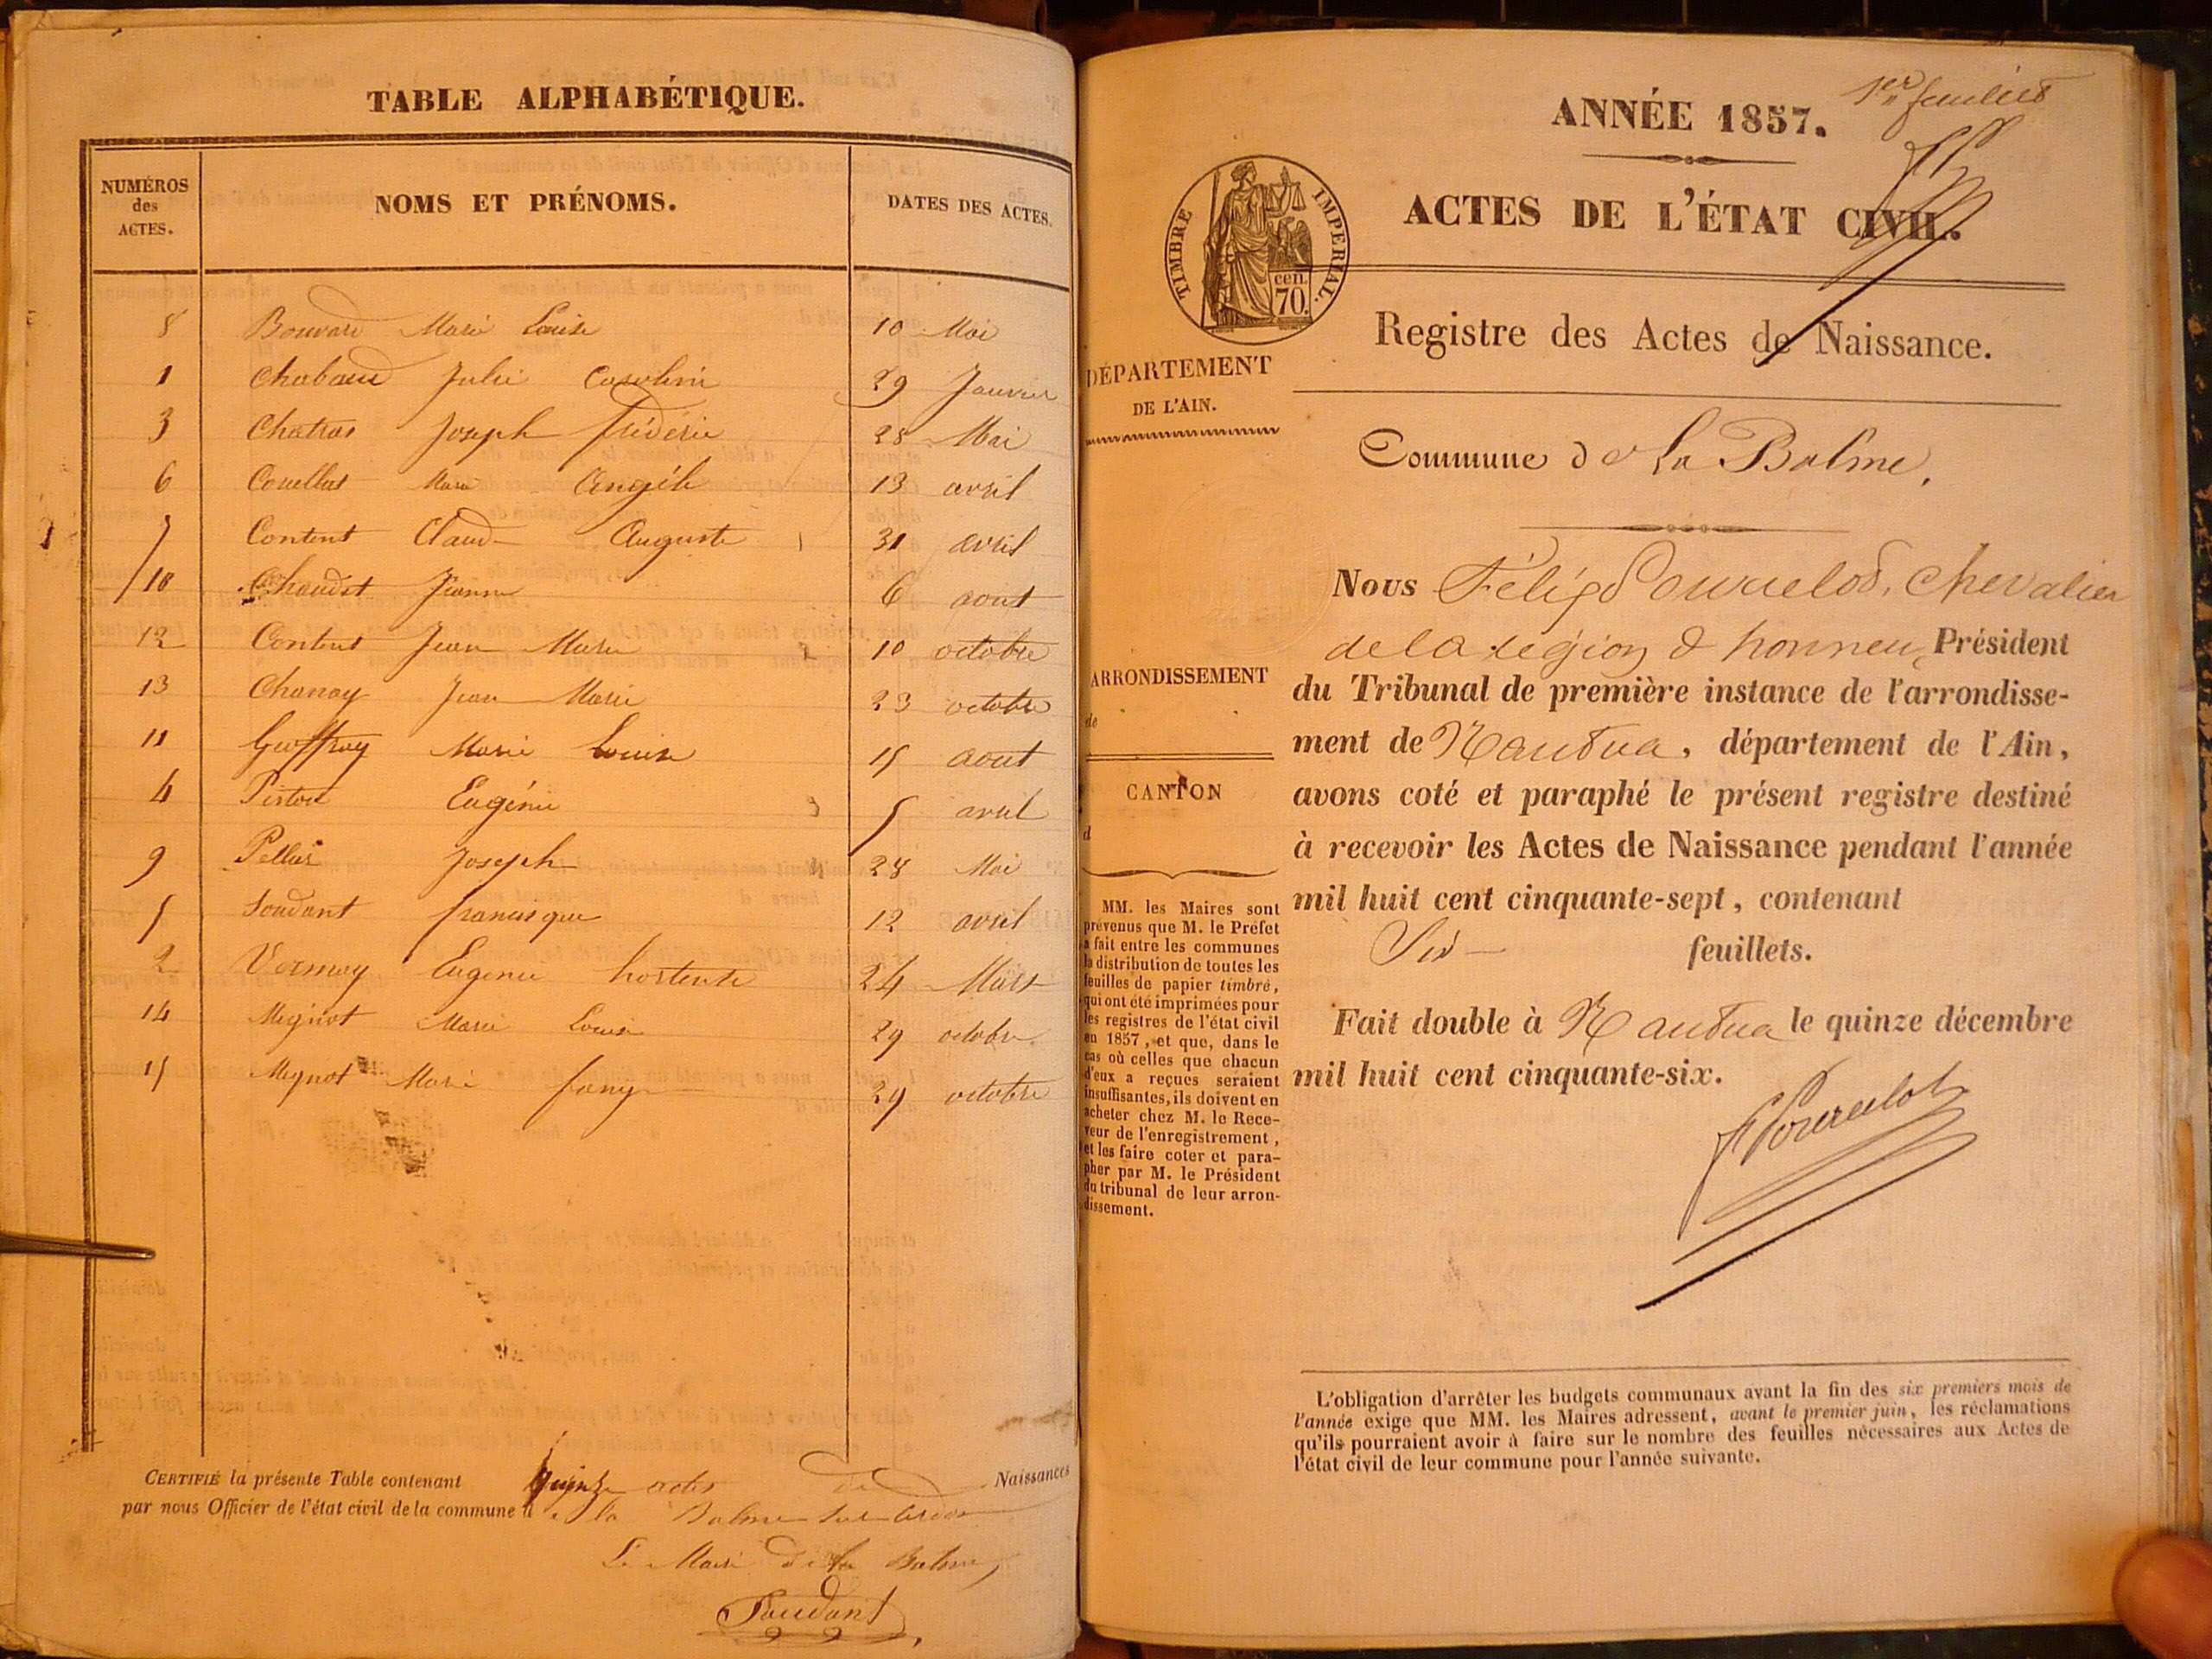 TABLE ALPHABÉTIQUE.
NUMÉROS
des
ACTES.
NOMS ET PRÉNOMS.
DATES DES ACTES.
8 Bouvard Marie Louise 10 Mai
1 Chabaud Julie Caroline 29 Janvier
3 Chatras Joseph frédéric 28 Mai
6 Marie Angèle 13 avril
7 Content Claude Auguste 31 avril
10 Chaudet 6 aout
12 Content Jean Marie 10 octobre
13 Chanay Jean Marie 23 octobre
11 Geoffray Marie Louise 15 aout
4 Eugénie 5 avril
9 Joseph 28 Mai
5 Soudant francisque 12 avril
2 Vermay Eugenie hortense 24 Mars
14 Mignot Marie Louise 29 octobre
15 Mignot Marie fany 29 octobre
CERTIFIÉ la présente Table contenant quinze actes de Naissances
par nous Officier de l'état civil de la commune d e la Balme sur Cerdon
Le Maire de la Balme,
Soudant
1er feuillet
ANNÉE 1857.
ACTES DE L'ÉTAT CIVIL.
TIMBRE IMPERIAL.
cen.
70.
Registre des Actes de Naissance.
DÉPARTEMENT
DE L'AIN.
Commune de La Balme.
Nous Félix Pourcelot, Chevalier
de la legion d'honneur, Président
ARRONDISSEMENT
de
du Tribunal de première instance de l'arrondisse-
ment de Nantua, département de l'Ain,
CANTON
d
avons coté et paraphé le présent registre destiné
à recevoir les Actes de Naissance pendant l'année
mil huit cent cinquante-sept, contenant
Six feuillets.
Fait double à Nantua le quinze décembre
mil huit cent cinquante-six.
F Pourcelot
MM. les Maires sont
prévenus que M. le Préfet
a fait entre les communes
la distribution de toutes les
feuilles de papier timbré,
qui ont été imprimées pour
les registres de l'état civil
en 1857, et que, dans le
cas où celles que chacun
d'eux a reçues seraient
insuffisantes, ils doivent en
acheter chez M. le Rece-
veur de l'enregistrement,
et les faire coter et para-
pher par M. le Président
du tribunal de leur arron-
dissement.
L'obligation d'arrêter les budgets communaux avant la fin des six premiers mois de
l'année exige que MM. les Maires adressent, avant le premier juin, les réclamations
qu'ils pourraient avoir à faire sur le nombre des feuilles nécessaires aux Actes de
l'état civil de leur commune pour l'année suivante.